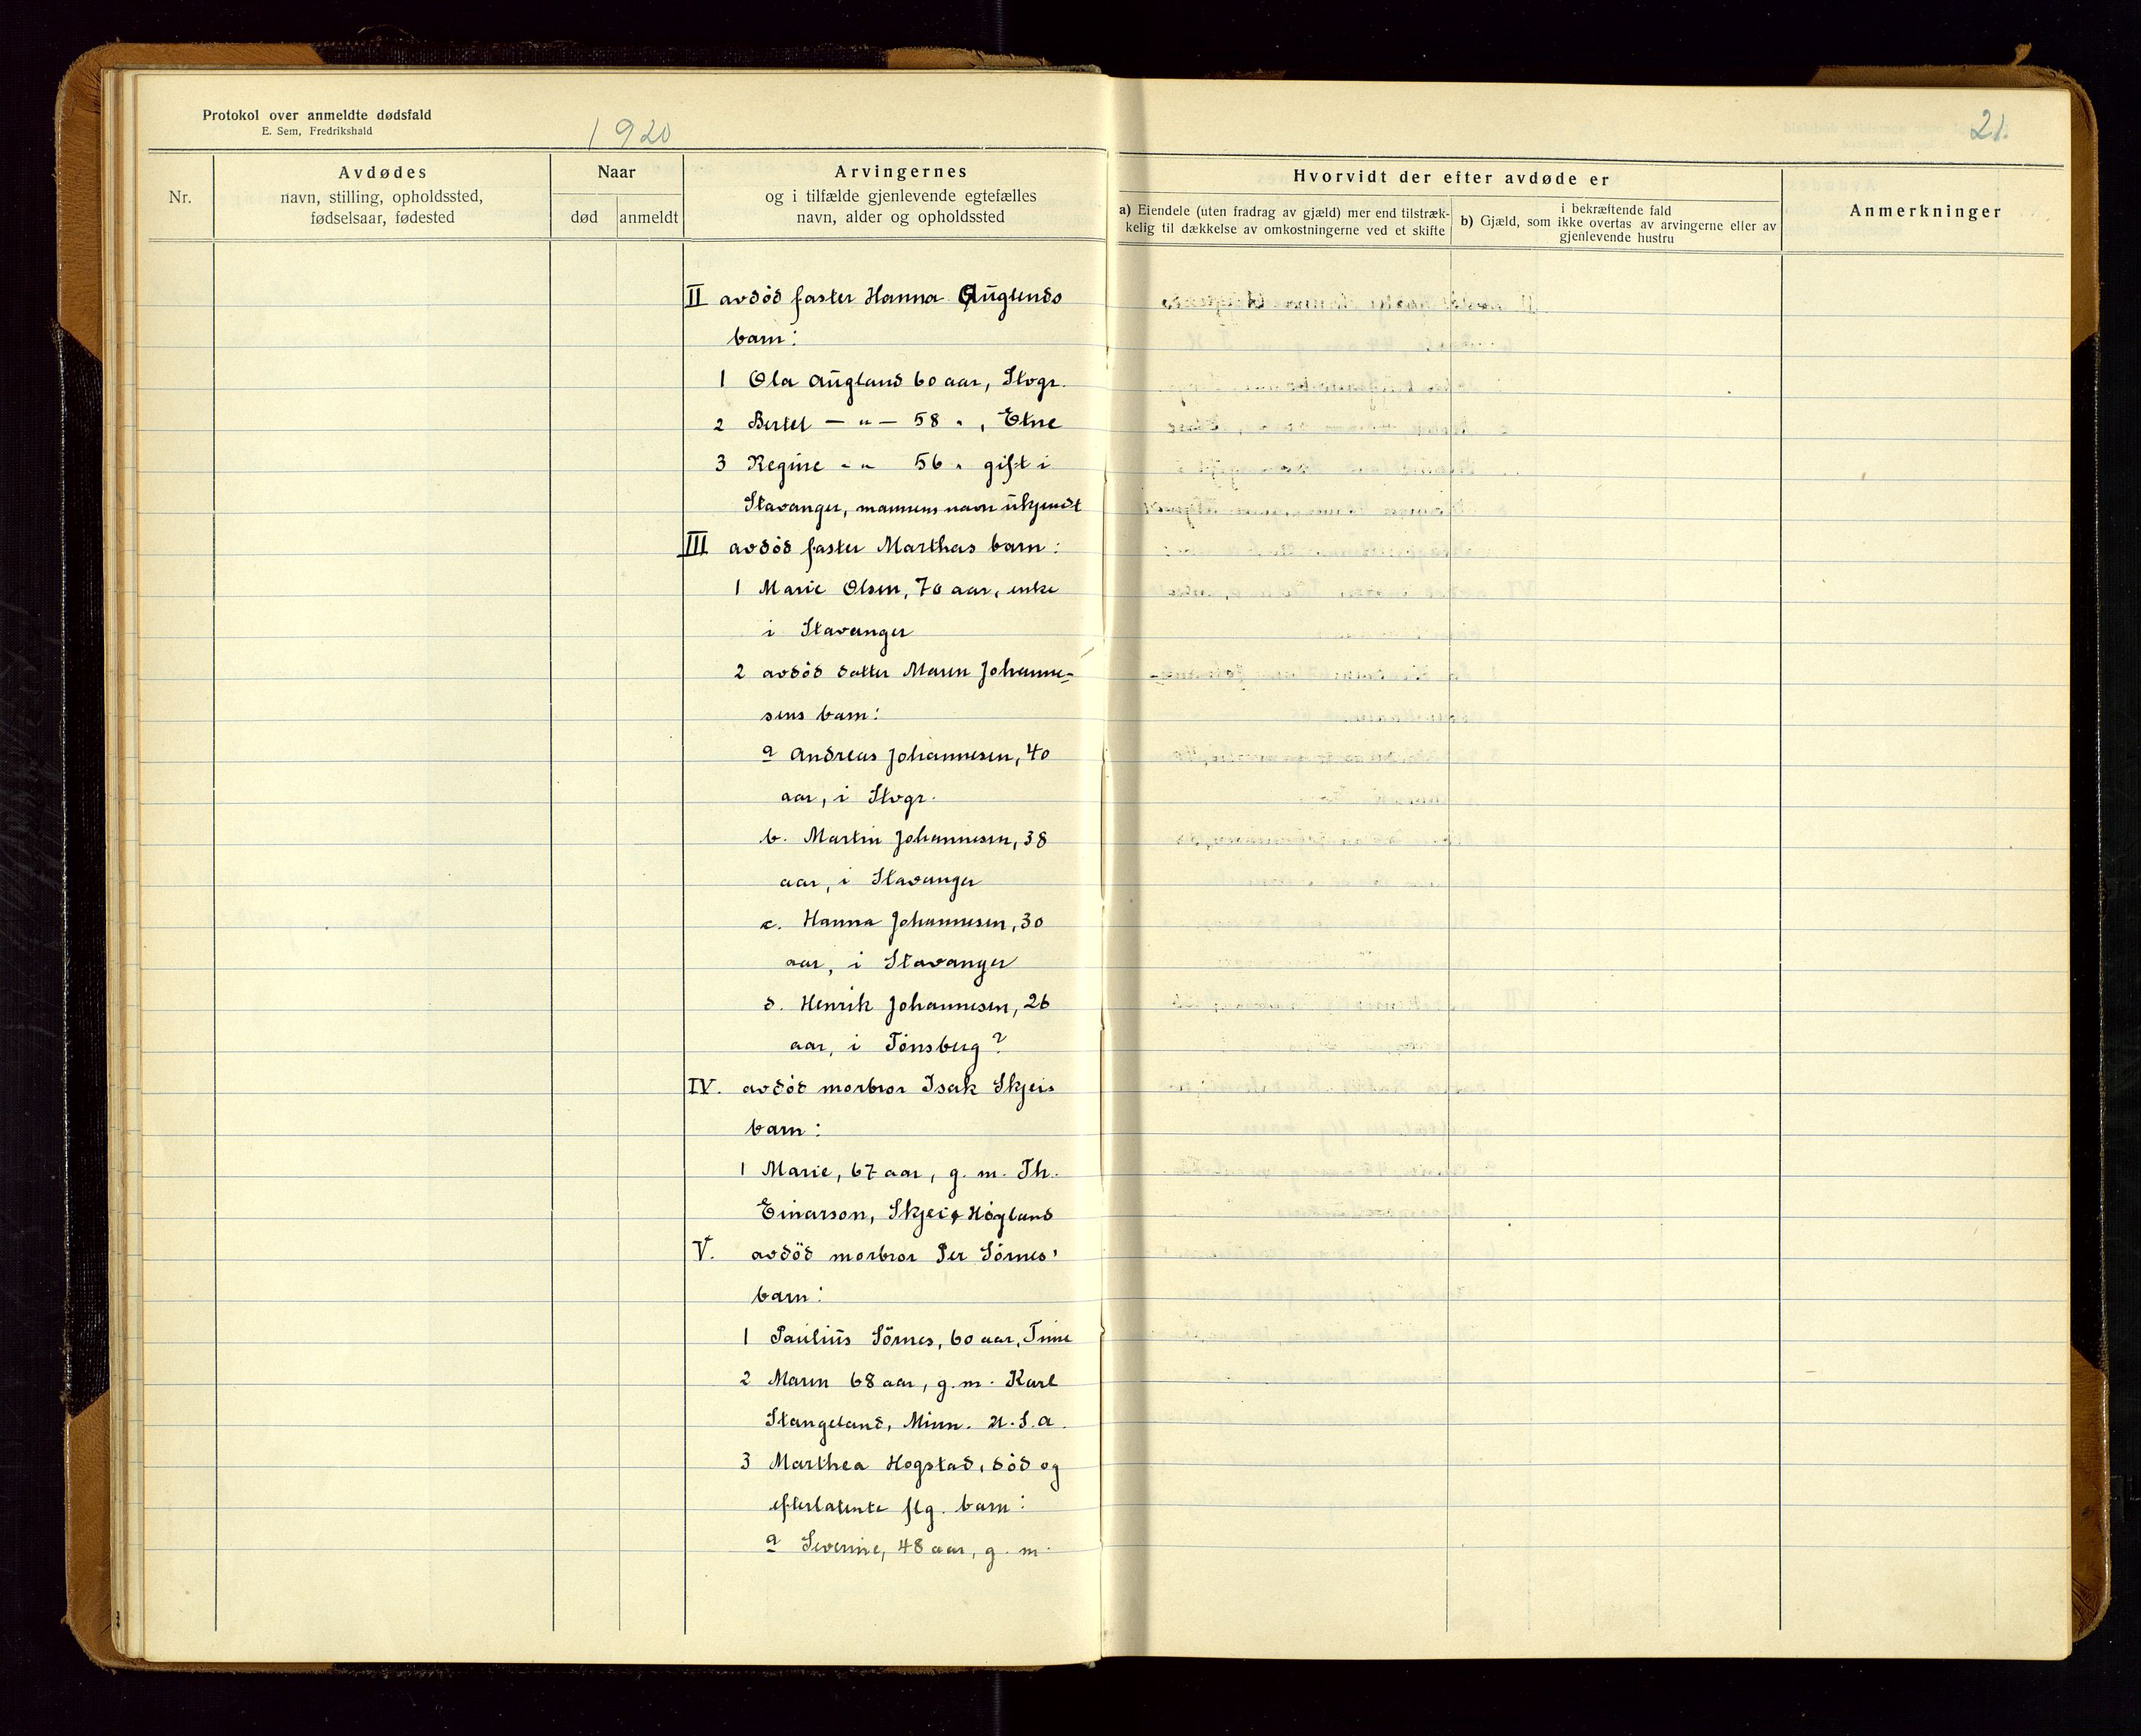 Protokol over anmeldte dødsfald
E. Sem, Fredrikshald
1920
21.
Nr.
Avdødes
navn, stilling, opholdssted,
fødselsaar, fødested
Naar
død
anmeldt
Arvingernes
og i tilfælde gjenlevende egtefælles
navn, alder og opholdssted
Hvorvidt der efter avdøde er
a) Eiendele (uten fradrag av gjæld) mer end tilstræk-
kelig til dækkelse av omkostningerne ved et skifte
i bekræftende fald
b) Gjæld, som ikke overtas av arvingerne eller av
gjenlevende hustru
Anmerkninger
II avdöd faster Hanna Auglends
barn:
1 Ola Augland 60 aar, Stvgr.
2 Bertel — " — 58 " , Etne
3 Regine - " 56 " gift i
Stavanger, mannens navn ukjendt
III avdöd faster Marthas barn:
1 Marie Olsen, 70 aar, enke
i Stavanger
2 avdöd datter Maren Johanne-
sens barn:
a Andreas Johannesen, 40
aar, i Stvgr.
b. Martin Johannesen, 38
aar, i Stavanger
c. Hanna Johannesen, 30
aar, i Stavanger
d. Henrik Johannesen, 26
aar, i Tönsberg?
IV. avdöd morbror Isak Skjeis
barn:
1 Marie, 67 aar, g. m. Th.
Einarson, Skjei, Högland
V. avdöd morbror Per Sörnes'
barn:
1 Paulius Sörnes, 60 aar, Time
2 Maren 68 aar, g. m. Karl
Stangeland, Minn. U.S.A.
3 Marthea Hogstad, död og
efterlatente flg. barn:
a Severine, 48 aar, g. m.